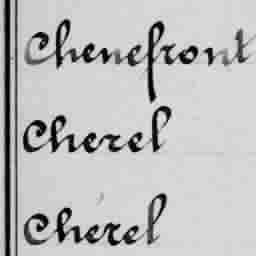 Chenefront
Cherel
Cherel